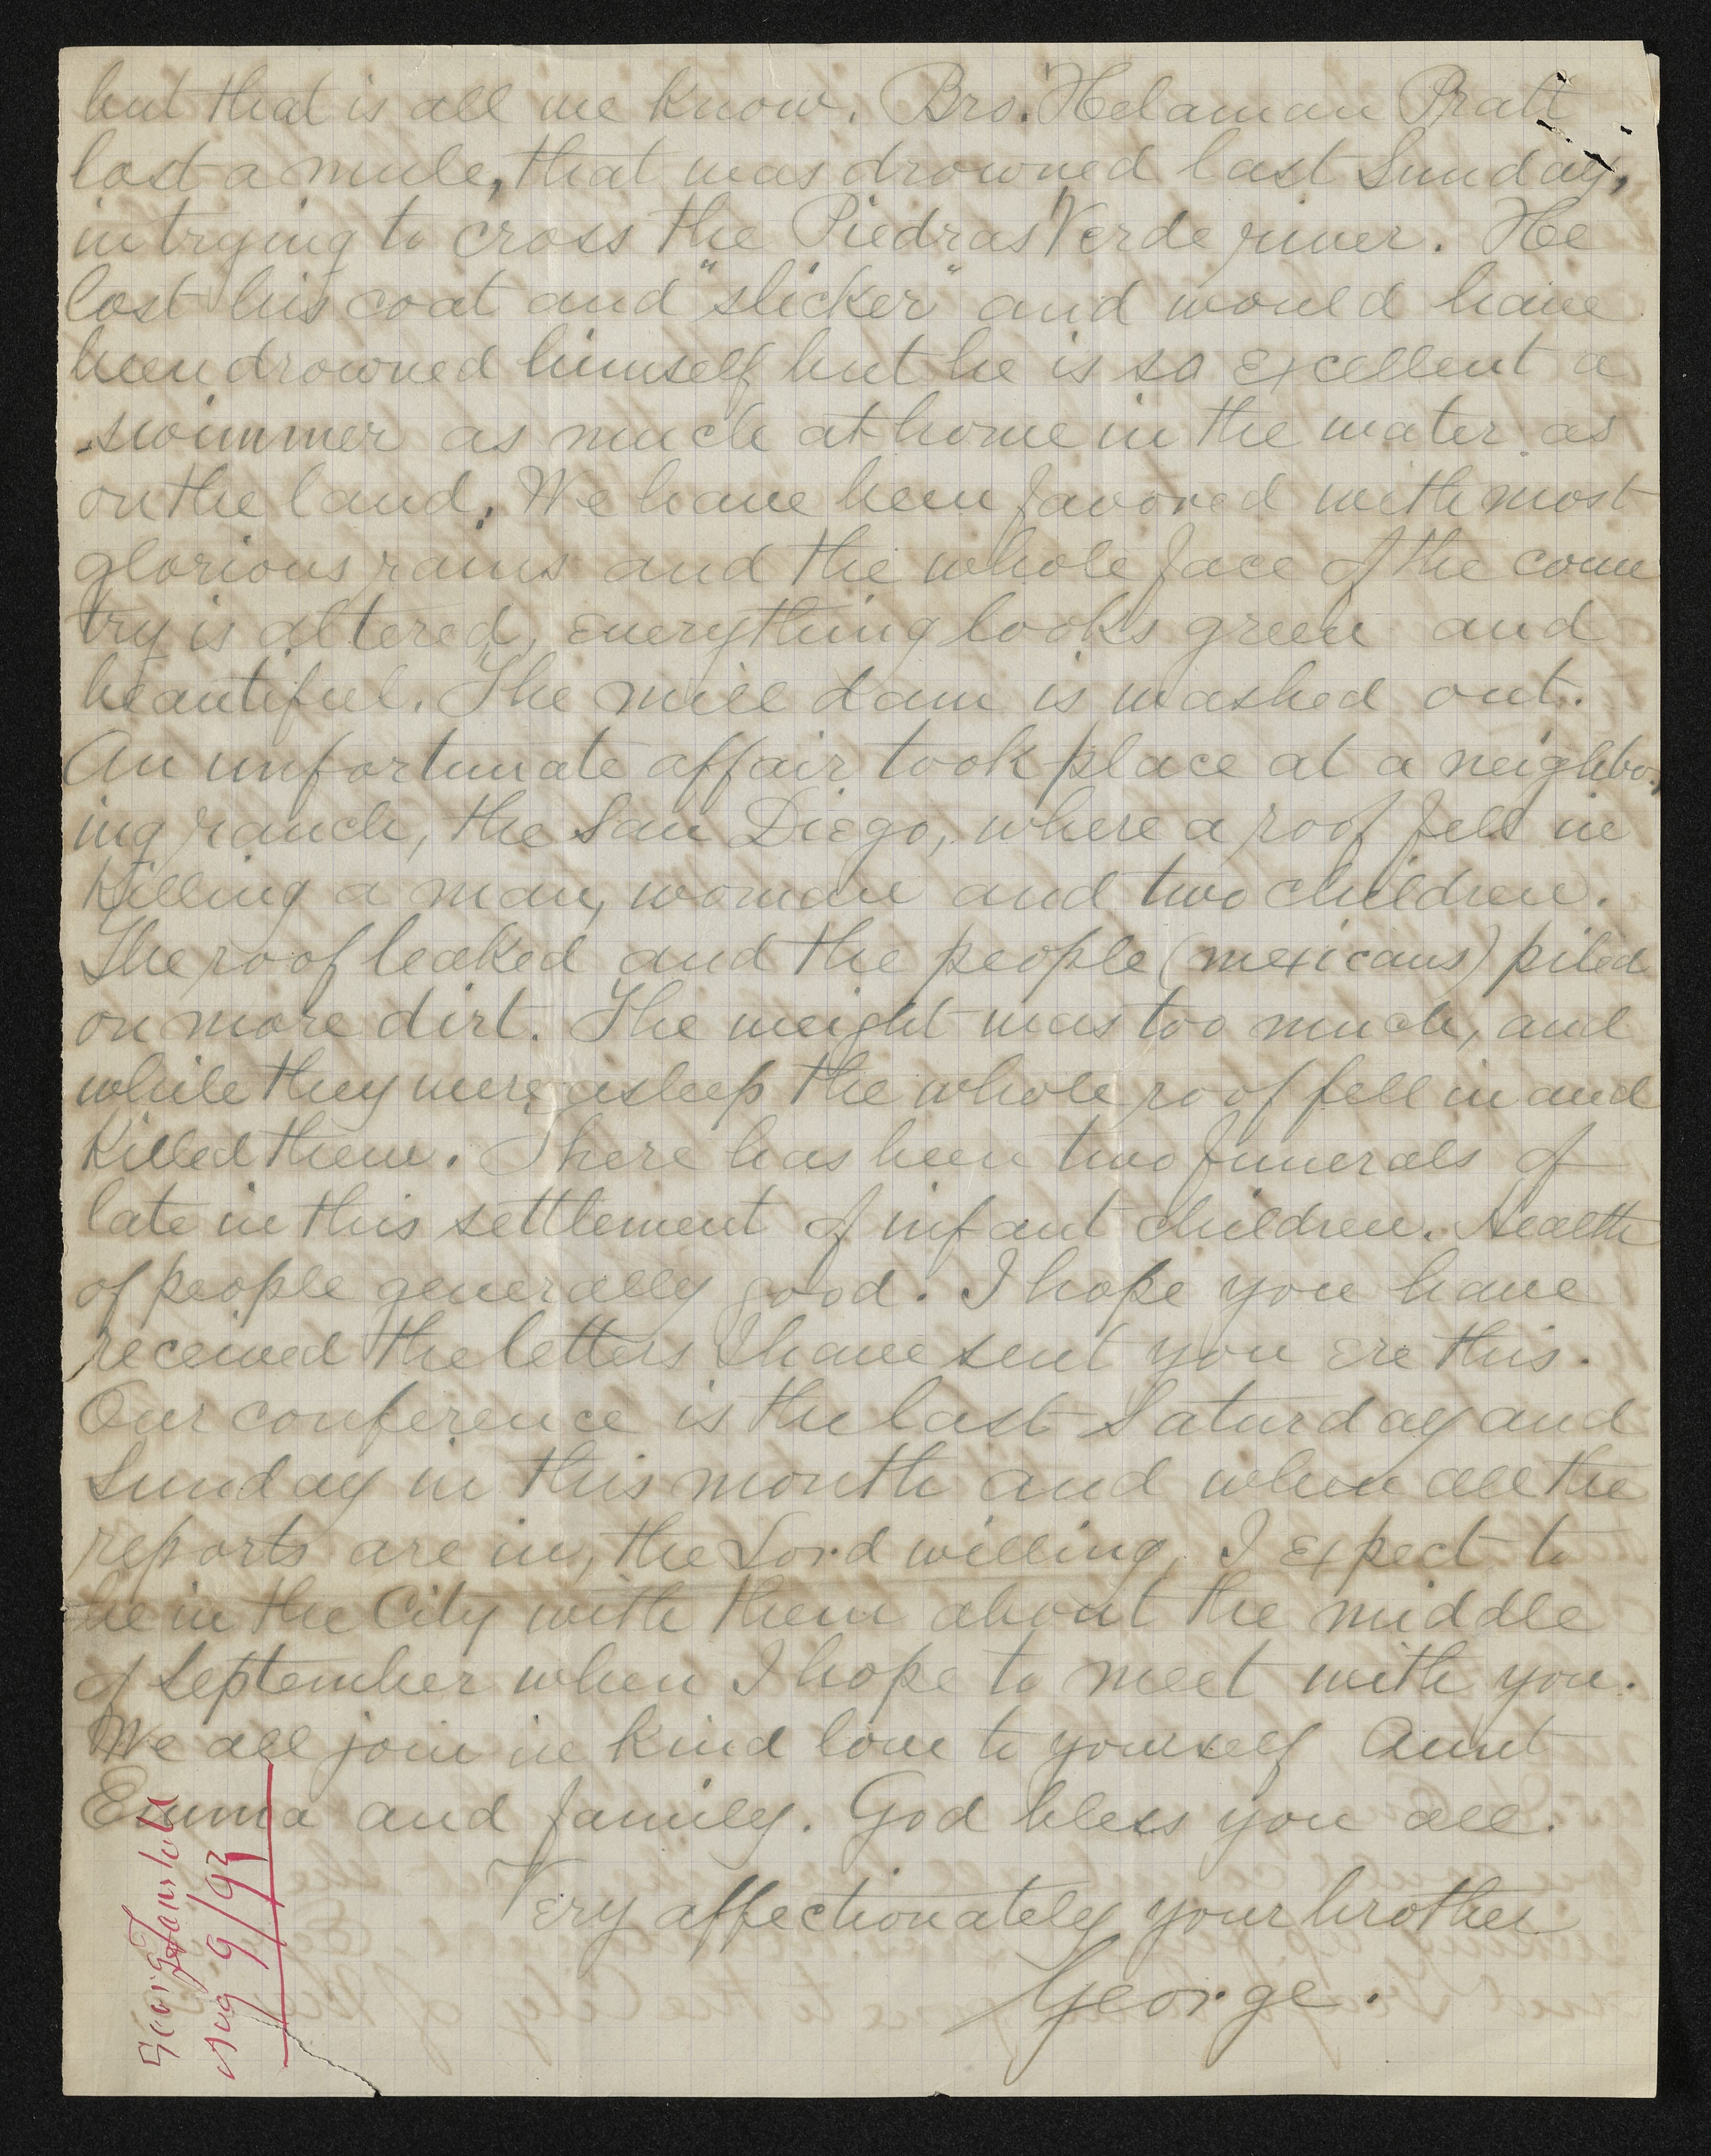 but that is all we know. Bro. Helaman Pratt
lost a mule, that was drowned last Sunday,
in trying to cross the Piedras Verde river. He
lost his coat and "slicker" and would have
been drowned himself but he is so excellent a
swimmer as much at home in the water as
on the land. We have been favored with most
glorious rains and the whole face of the coun
try is altered, everything looks green and
beautiful. The mill dam is washed out.
An unfortunate affair took place at a neighbor
ing ranch, the San Diego, where a roof fell in
killing a man, woman and two children.
The roof leaked and the people (mexicans) piled
on more dirt. The weight was too much, and
while they were asleep the whole roof fell in and
killed them. There has been two funerals of
late in this settlement of infant children. Health
of people generally good. I hope you have
received the letters I have sent you ere this.
Our conference is the last Saturday and
Sunday in this month and when all the
reports are in, the Lord willing, I expect to
be in the City with them about the middle
of September when I hope to meet with you.
We all join in kind love to yourself Aunt
Emma and family. God bless you all.
Very affectionately your brother
George.
George
Aug 9/93